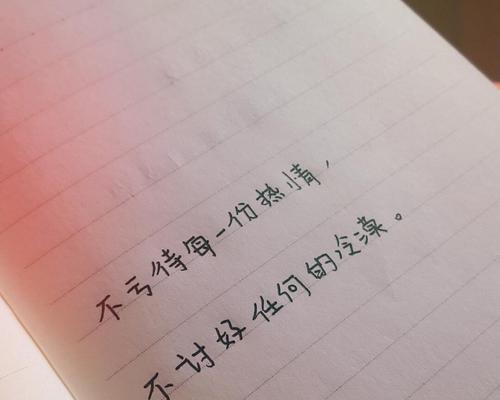 不亏待每一份热情，
不讨好任何的冷漠。